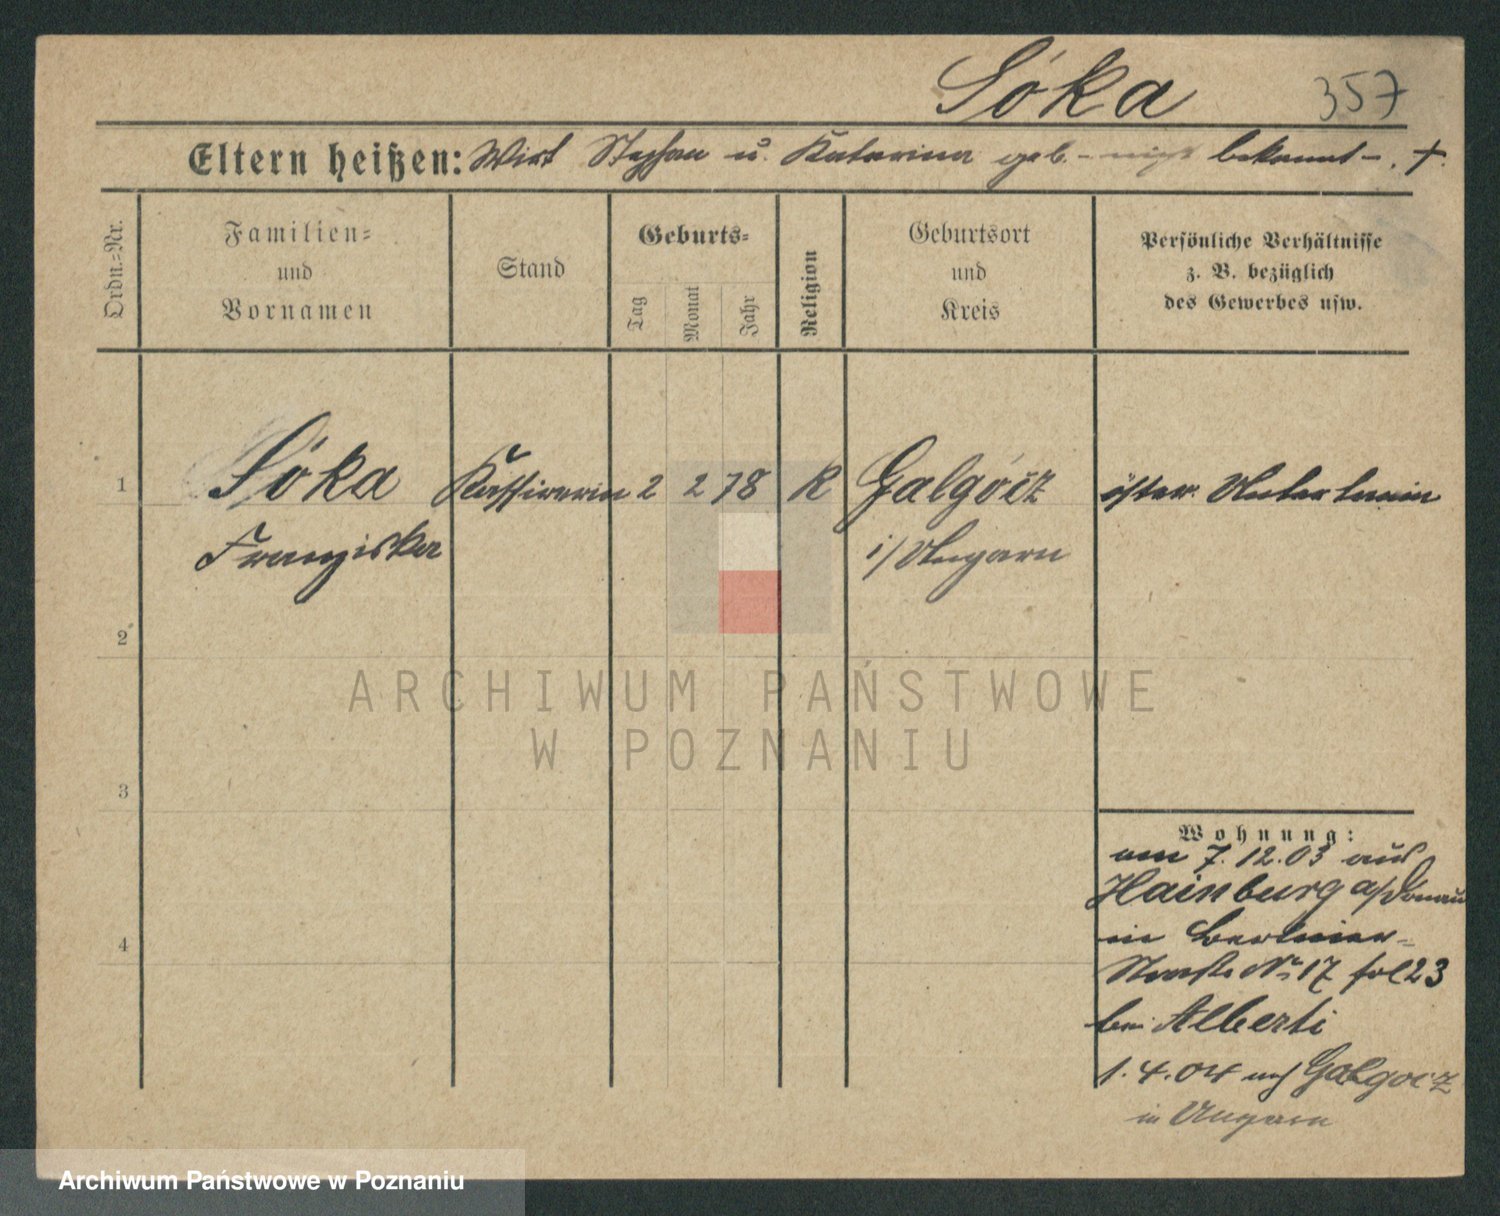 Sóka 357
Eltern heißen: Wirt Stephan u. Katarina geb. - nicht bekannt -. +.
Ordn.-Nr.
Familien-
und
Vornamen
Stand
Geburts-
Tag
Monat
Jahr
Religion
Geburtsort
und
Kreis
Persönliche Verhältnisse
z. B. bezüglich
des Gewerbes usw.
1 Sóka Kassirerin 2 2 78 R Galgócz öster. Untertanin
Franziska i/Ungarn
2
3
4
Wohnung:
am 7.12.03 aus
Hainburg a/Donau
in Berliner-
Straße No 17 fol 23
bei Alberti
1.4.04 nach Galgocz
in Ungarn
ARCHIWUM PAŃSTWOWE
W POZNANIU
Archiwum Państwowe w Poznaniu